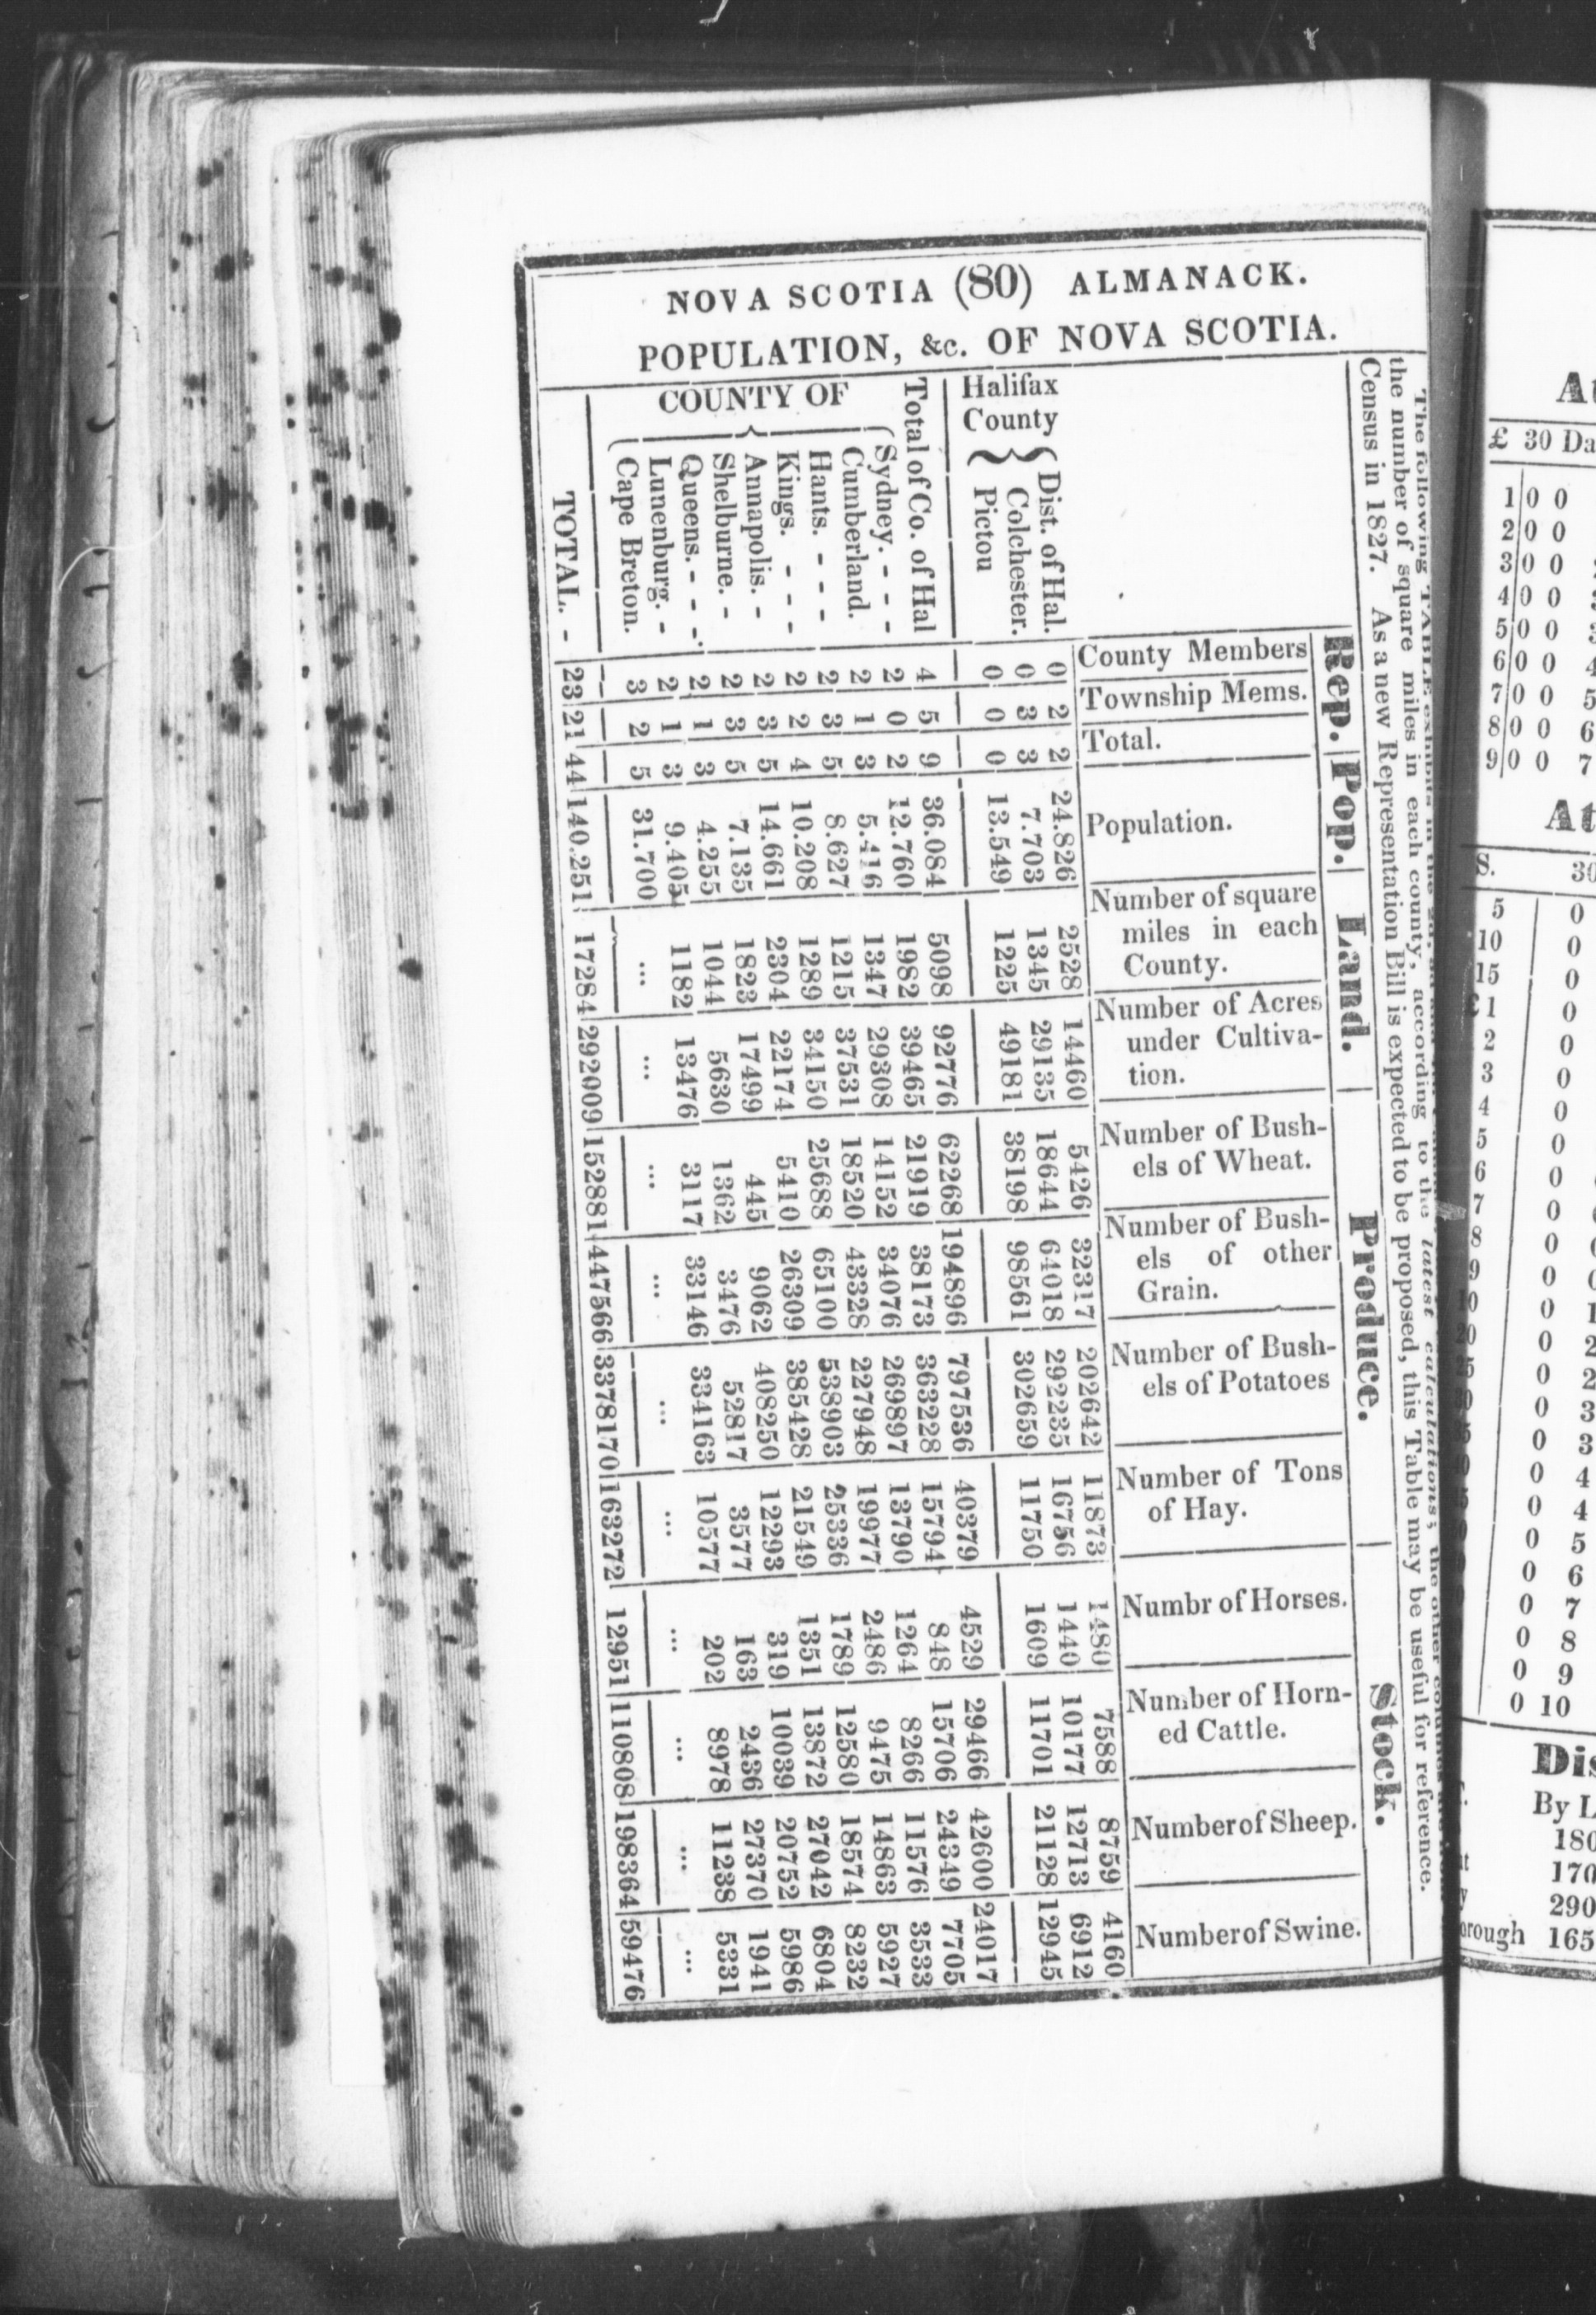 NOVA SCOTIA (80) ALMANACK.
POPULATION, &c. OF NOVA SCOTIA.
The following TABLE exhibits in the
the number of square miles in each county, according to the latest calculations; the other
Census in 1827. As a new Representation Bill is expected to be proposed, this Table may be useful for reference.
Rep. Pop. Land. Produce. Stock.
County Members
Township Mems.
Total.
Population.
Number of square
miles in each
County.
Number of Acres
under Cultiva-
tion.
Number of Bush-
els of Wheat.
Number of Bush-
els of other
Grain.
Number of Bush-
els of Potatoes
Number of Tons
of Hay.
Numbr of Horses.
Number of Horn-
ed Cattle.
Number of Sheep.
Number of Swine.
Halifax
County
Dist. of Hal. 0 2 2 24.826 2528 14460 5426 32317 202642 11873 1480 7588 8759 4160
Colchester. 0 3 3 7.703 1345 29135 18644 64018 292235 16756 1440 10177 12713 6912
Pictou 0 0 0 13.549 1225 49181 38198 98561 302659 11750 1609 11701 21128 12945
Total of Co. of Hal 4 5 9 36.084 5098 92776 62268 194896 797536 40379 4529 29466 42600 24017
COUNTY OF
Sydney. - - 2 0 2 12.760 1982 39465 21919 38173 363228 15794 848 15706 24349 7705
Cumberland. 2 1 3 5.416 1347 29308 14152 34076 269897 13790 1264 8266 11576 3533
Hants. - - - 2 3 5 8.627 1215 37531 18520 43328 227948 19977 2486 9475 14863 5927
Kings. - - - 2 2 4 10.208 1289 34150 25688 65100 538903 25336 1789 12580 18574 8232
Annapolis. - 2 3 5 14.661 2304 22174 5410 26309 385428 21549 1351 13872 27042 6804
Shelburne. - 2 3 5 7.135 1823 17499 445 9062 408250 12293 319 10039 20752 5986
Queens. - - 2 1 3 4.255 1044 5630 1362 3476 52817 3577 163 2436 27370 1941
Lunenburg. - 2 1 3 9.405 1182 13476 3117 33146 334163 10577 202 8978 11238 5331
Cape Breton. 3 2 5 31.700 ... ... ... ... ... ... ... ... ... ...
TOTAL. - 23 21 44 140.251 17284 292009 152881 447566 3378170 163272 12951 110808 198364 59476
£ 30 Da
1 0 0
2 0 0
3 0 0
4 0 0
5 0 0
6 0 0 4
7 0 0 5
8 0 0 6
9 0 0 7
At
S. 30
5 0
10 0
15 0
£1 0
2 0
3 0
4 0
5 0
6 0
7 0
8 0
9 0
10 0 1
20 0 2
0 2
0 3
0 3
0 4
0 4
0 5
0 6
0 7
0 8
0 9
0 10
Dis
By L
180
170
290
orough 165